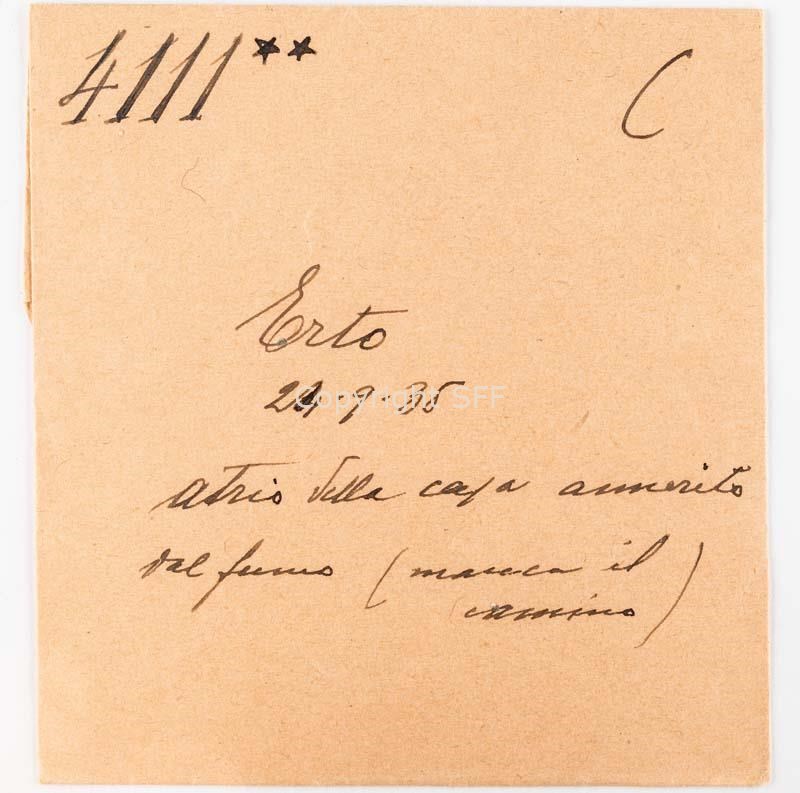 4111** C
Erto
9·35
Copyright SFF
atrio della casa annerito
dal fumo (manca il
camino)